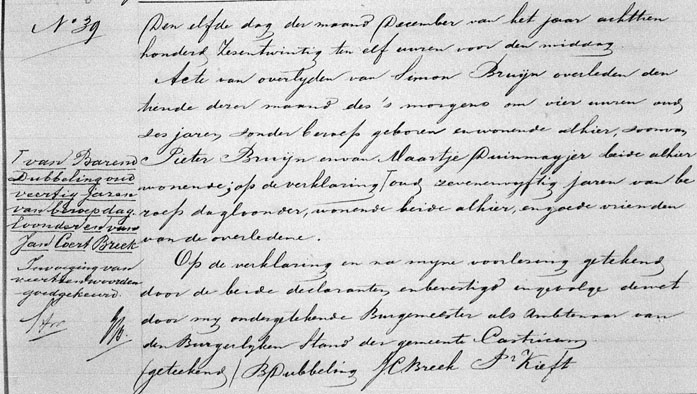 N° 39
Den elfde dag der maand December van het jaar achttien
honderd Zesentwintig ten elf uuren voor den middag.
Acte van overlyden van Simon Bruijn overleden den
tiende dezer maand des 's morgens om vier uuren oud
zes jaren, zonder beroep geboren en wonende alhier, zoon van
Pieter Bruijn en van Maartje Duinmayjer beide alhier
wonende; op de verklaring ⌈ oud zevenenvyftig jaren van be
roep dagloonder, wonende beide alhier, en goede vrienden
van de overledene.
Op de verklaring en na myne voorlezing getekend
door de beide declaranten, en bevestigd ingevolge de wet
door my ondergetekende Burgemeester als Ambtenaar van
den Burgerlyken Stand der gemeente Castricum
(geteekend) BDubbeling JCBreek Pr Kieft
⌈ van Barend
Dubbeling oud
veertig Jaren
van beroep dag
loonder en van
Jan Coert Breek
Invoeging van
veertien woorden
goedgekeurd.